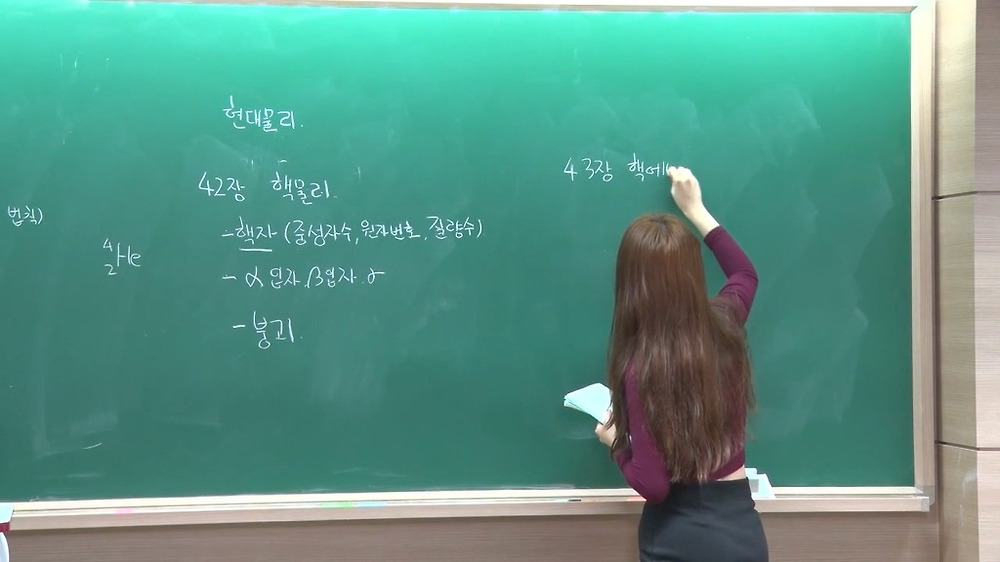 현대물리.
42장 핵물리.
- 핵자 (중성자수, 원자번호, 질량수)
- α입자, β입자, γ
- 붕괴.
법칙)
⁴₂He
43장 핵에너